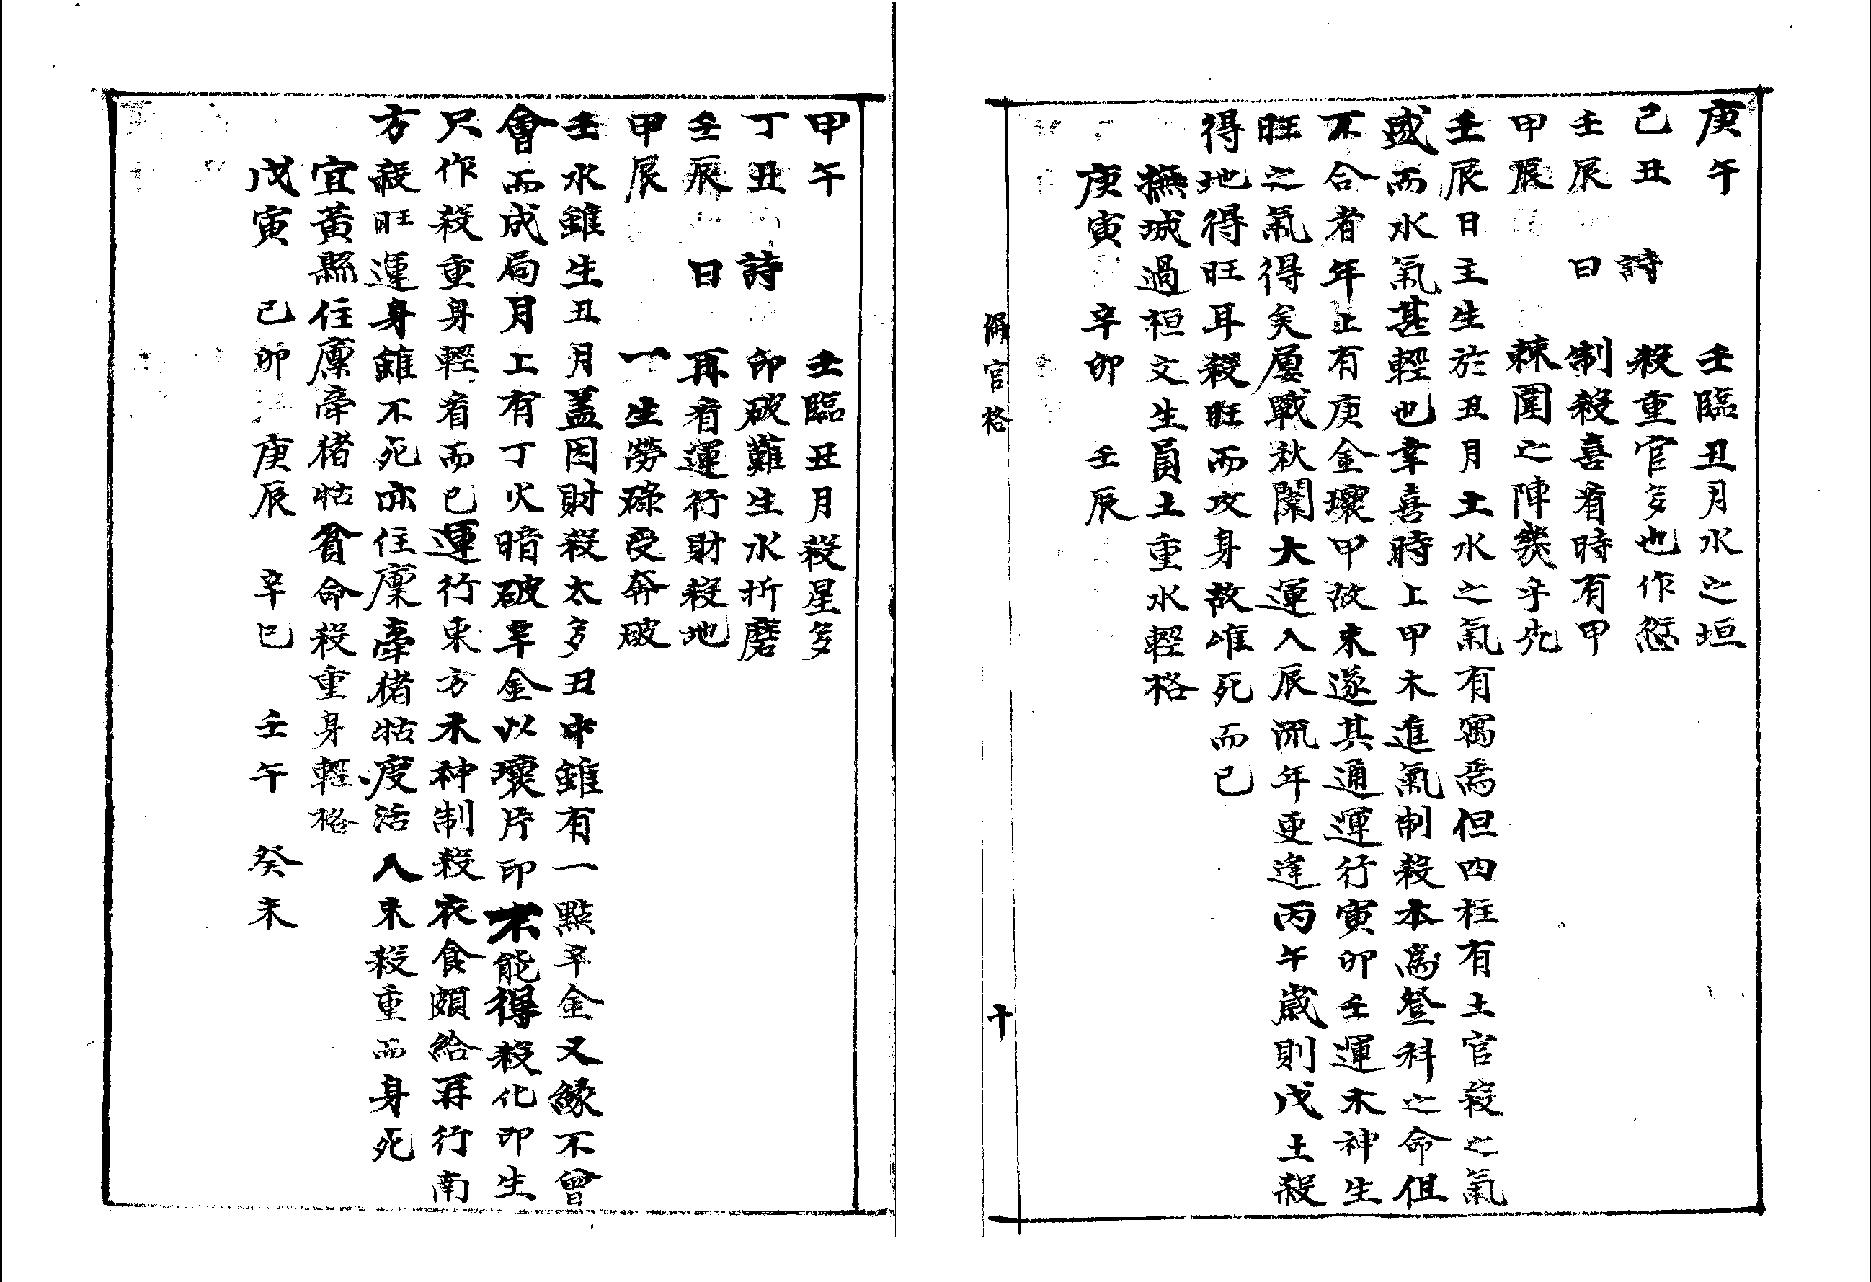 庚午　　　壬臨丑月水之垣
己丑　詩　殺重官多也作愆
壬辰　曰　制殺喜看時有甲
甲辰　　　棘闈之陣幾乎先
壬辰日主生於丑月土水之氣有寓焉但四柱有土官殺之氣
盛而水氣甚輕也幸喜時上甲木進氣制殺本為登科之命但
不合者年上有庚金壞甲故未遂其通運行寅卯壬運木神生
旺之氣得矣屢戰秋闈大運入辰流年更逢丙午歲則戊土殺
得地得旺耳殺旺而攻身故唯死而已
撫城過桓文生員土重水輕格
庚寅　辛卯　壬辰
偏官格
十
甲午　　　壬臨丑月殺星多
丁丑　詩　印破難生水折磨
壬辰　曰　再看運行財殺地
甲辰　　　一生勞碌受奔破
壬水雖生丑月蓋因財殺太多丑中雖有一點辛金又緣不曾
會而成局月上有丁火暗破辛金以壞片印不能得殺化印生
只作殺重身輕看而已運行東方木神制殺衣食頗給再行南
方殺旺運身雖不死亦住廩牽猪牯度活入未殺重而身死
宜黃縣住廩牽猪牯貧命殺重身輕格
戊寅　己卯　庚辰　辛巳　壬午　癸未